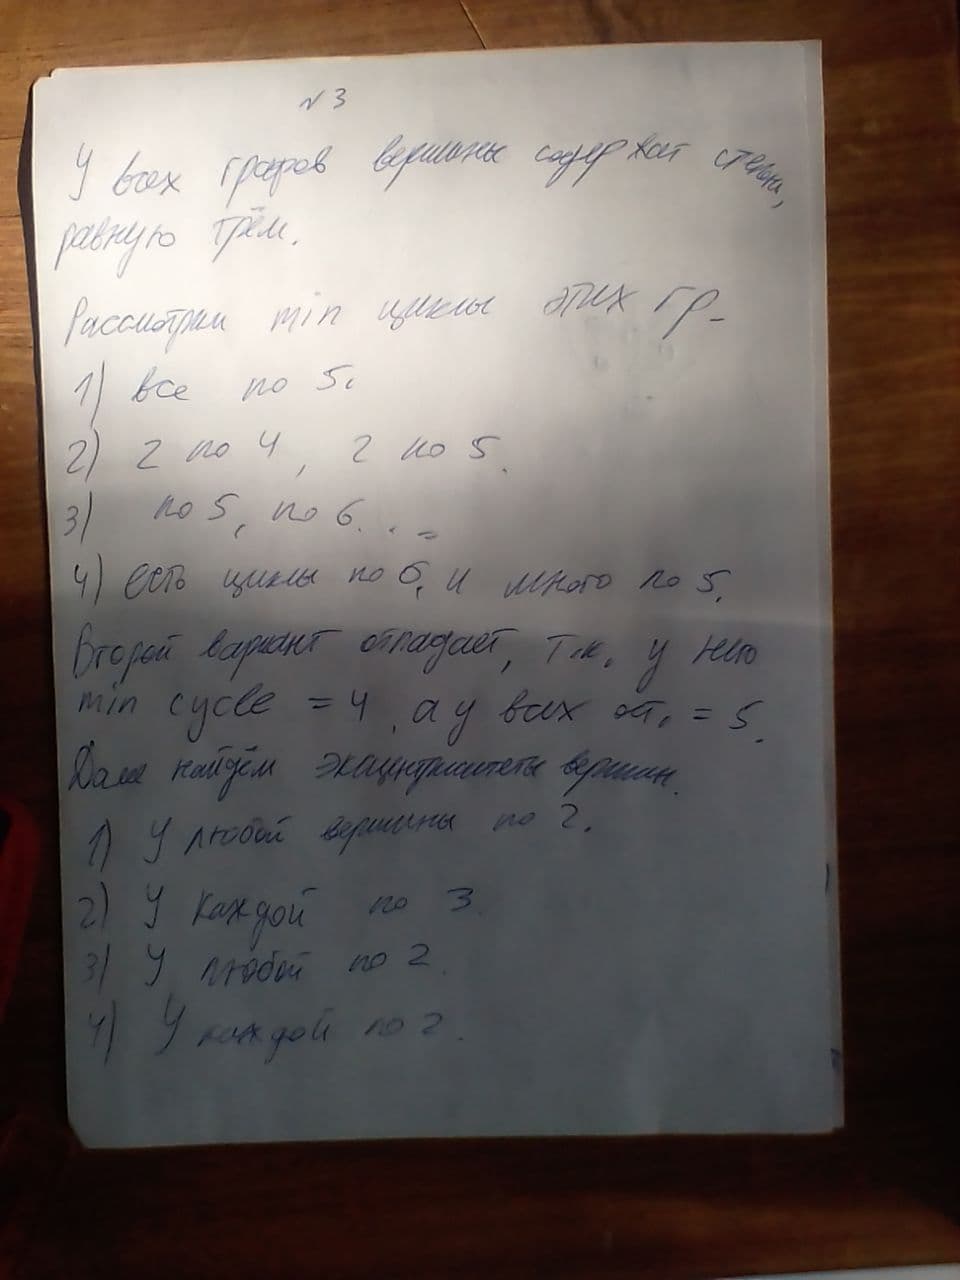 №3
У всех графов вершины содержат степень,
равную трём.
Рассмотрим min циклы этих гр-
1) все по 5.
2) 2 по 4, 2 по 5.
3) по 5, по 6...
4) есть циклы по 6, и много по 5.
Второй вариант отпадает, т.к. у него
min cycle = 4, а у всех ост. = 5.
Далее найдём эксцентриситеты вершин.
1) У любой вершины по 2.
2) У каждой по 3.
3) У любой по 2.
4) У каждой по 2.